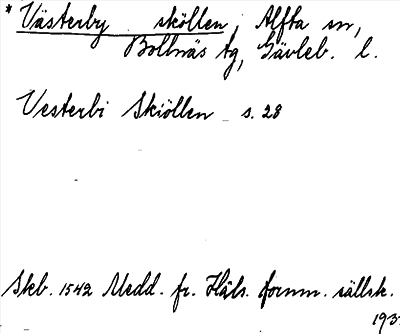 * Västerby sköllen, Alfta sn,
Bollnäs tg, Gävleb. l.
Vesterbi Skiöllen s. 28
Skb. 1542 Medd. fr. Häls. fornm. sällsk.
193